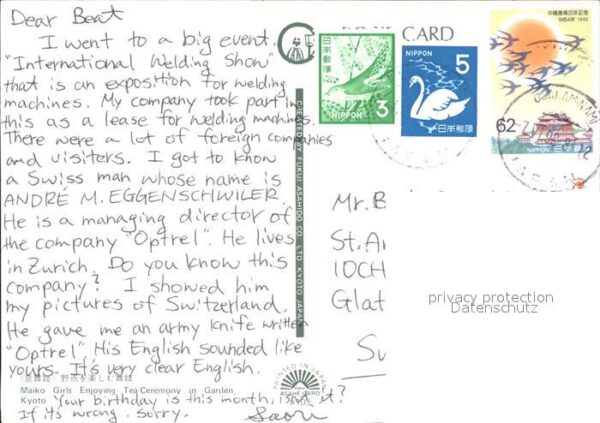 Dear Beat
I went to a big event
"International Welding Show"
that is an exposition for welding
machines. My company took part in
this as a lease for welding machines.
There were a lot of foreign companies
and visitors. I got to know
a Swiss man whose name is
ANDRÉ M. EGGENSCHWILER.
He is a managing director of
the company "Optrel". He lives
in Zurich. Do you know this
company? I showed him
my pictures of Switzerland.
He gave me an army knife written
"Optrel" His English sounded like
yours. It's very clear English.
Maiko Girls Enjoying Tea-Ceremony in Garden,
Kyoto
Your birthday is this month, isn't it?
If it's wrong. Sorry.
Saori
CARD
日本郵便
3
NIPPON
NIPPON
5
日本郵便
沖縄復帰20年記念
平成4年 1992
62
NIPPON 日本郵便
JAPAN
FUKUI ASAHIDO CO. LTD. KYOTO JAPAN
PRINTED IN JAPAN
Mr. B
St. A
10CH
Glat
privacy protection
Datenschutz